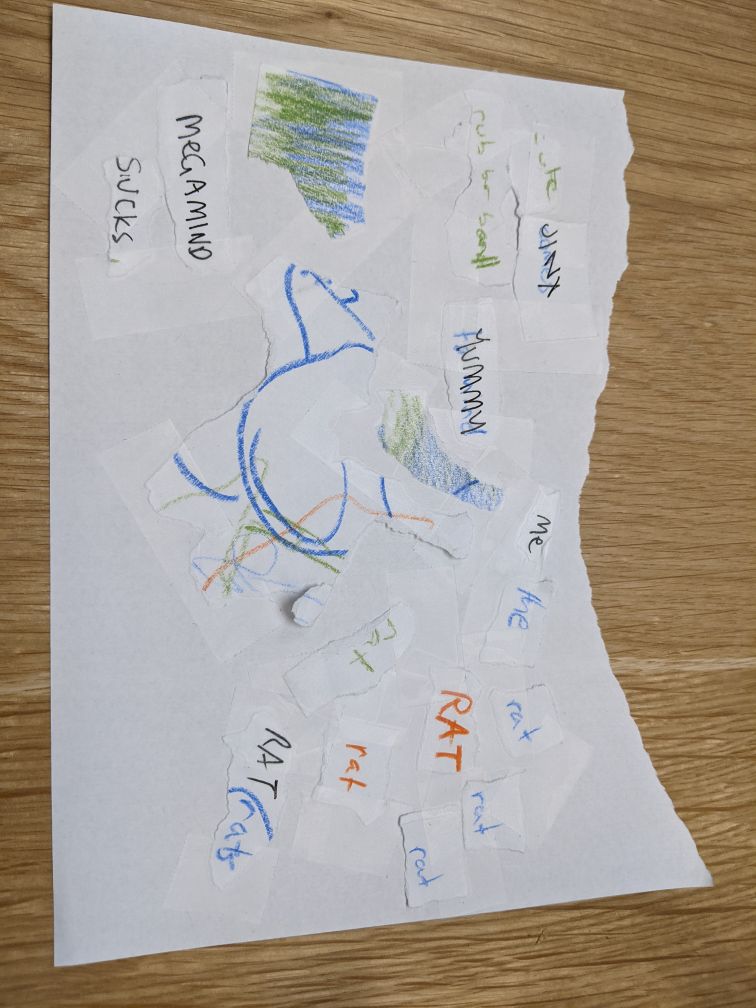 cute
rub br band
YUMMY
Me the rat
rat
RAT
rat
rat
rat
RAT rats
MEGAMIND
SUCKS